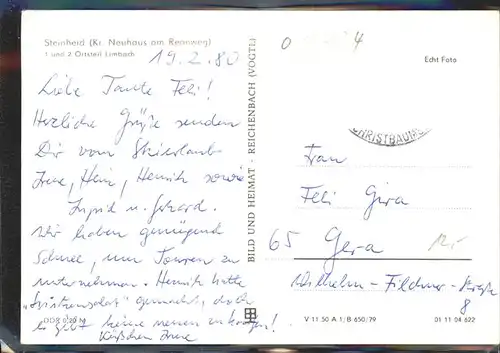 Steinheid (Kr. Neuhaus am Rennweg)
1 und 2 Ortsteil Limbach
19.2.80
Liebe Tante Feli!
Herzliche Grüße senden
Dir vom Skiurlaub
Irene, Hein, Henrik sowie
Ingrid u. Gerhard.
Wir haben genügend
Schnee, um Touren zu
unternehmen. Henrik hatte
gemacht, doch
es gibt keine neuen zu
Küßchen Irene
DDR 0,20 M
BILD UND HEIMAT · REICHENBACH (VOGTL)
0 4
Echt Foto
CHRISTBAUM
Frau
Feli Gira
65 Gera
Wilhelm-Fildner-Straße
8
V 11 50 A 1/B 650/79
01 11 04 622